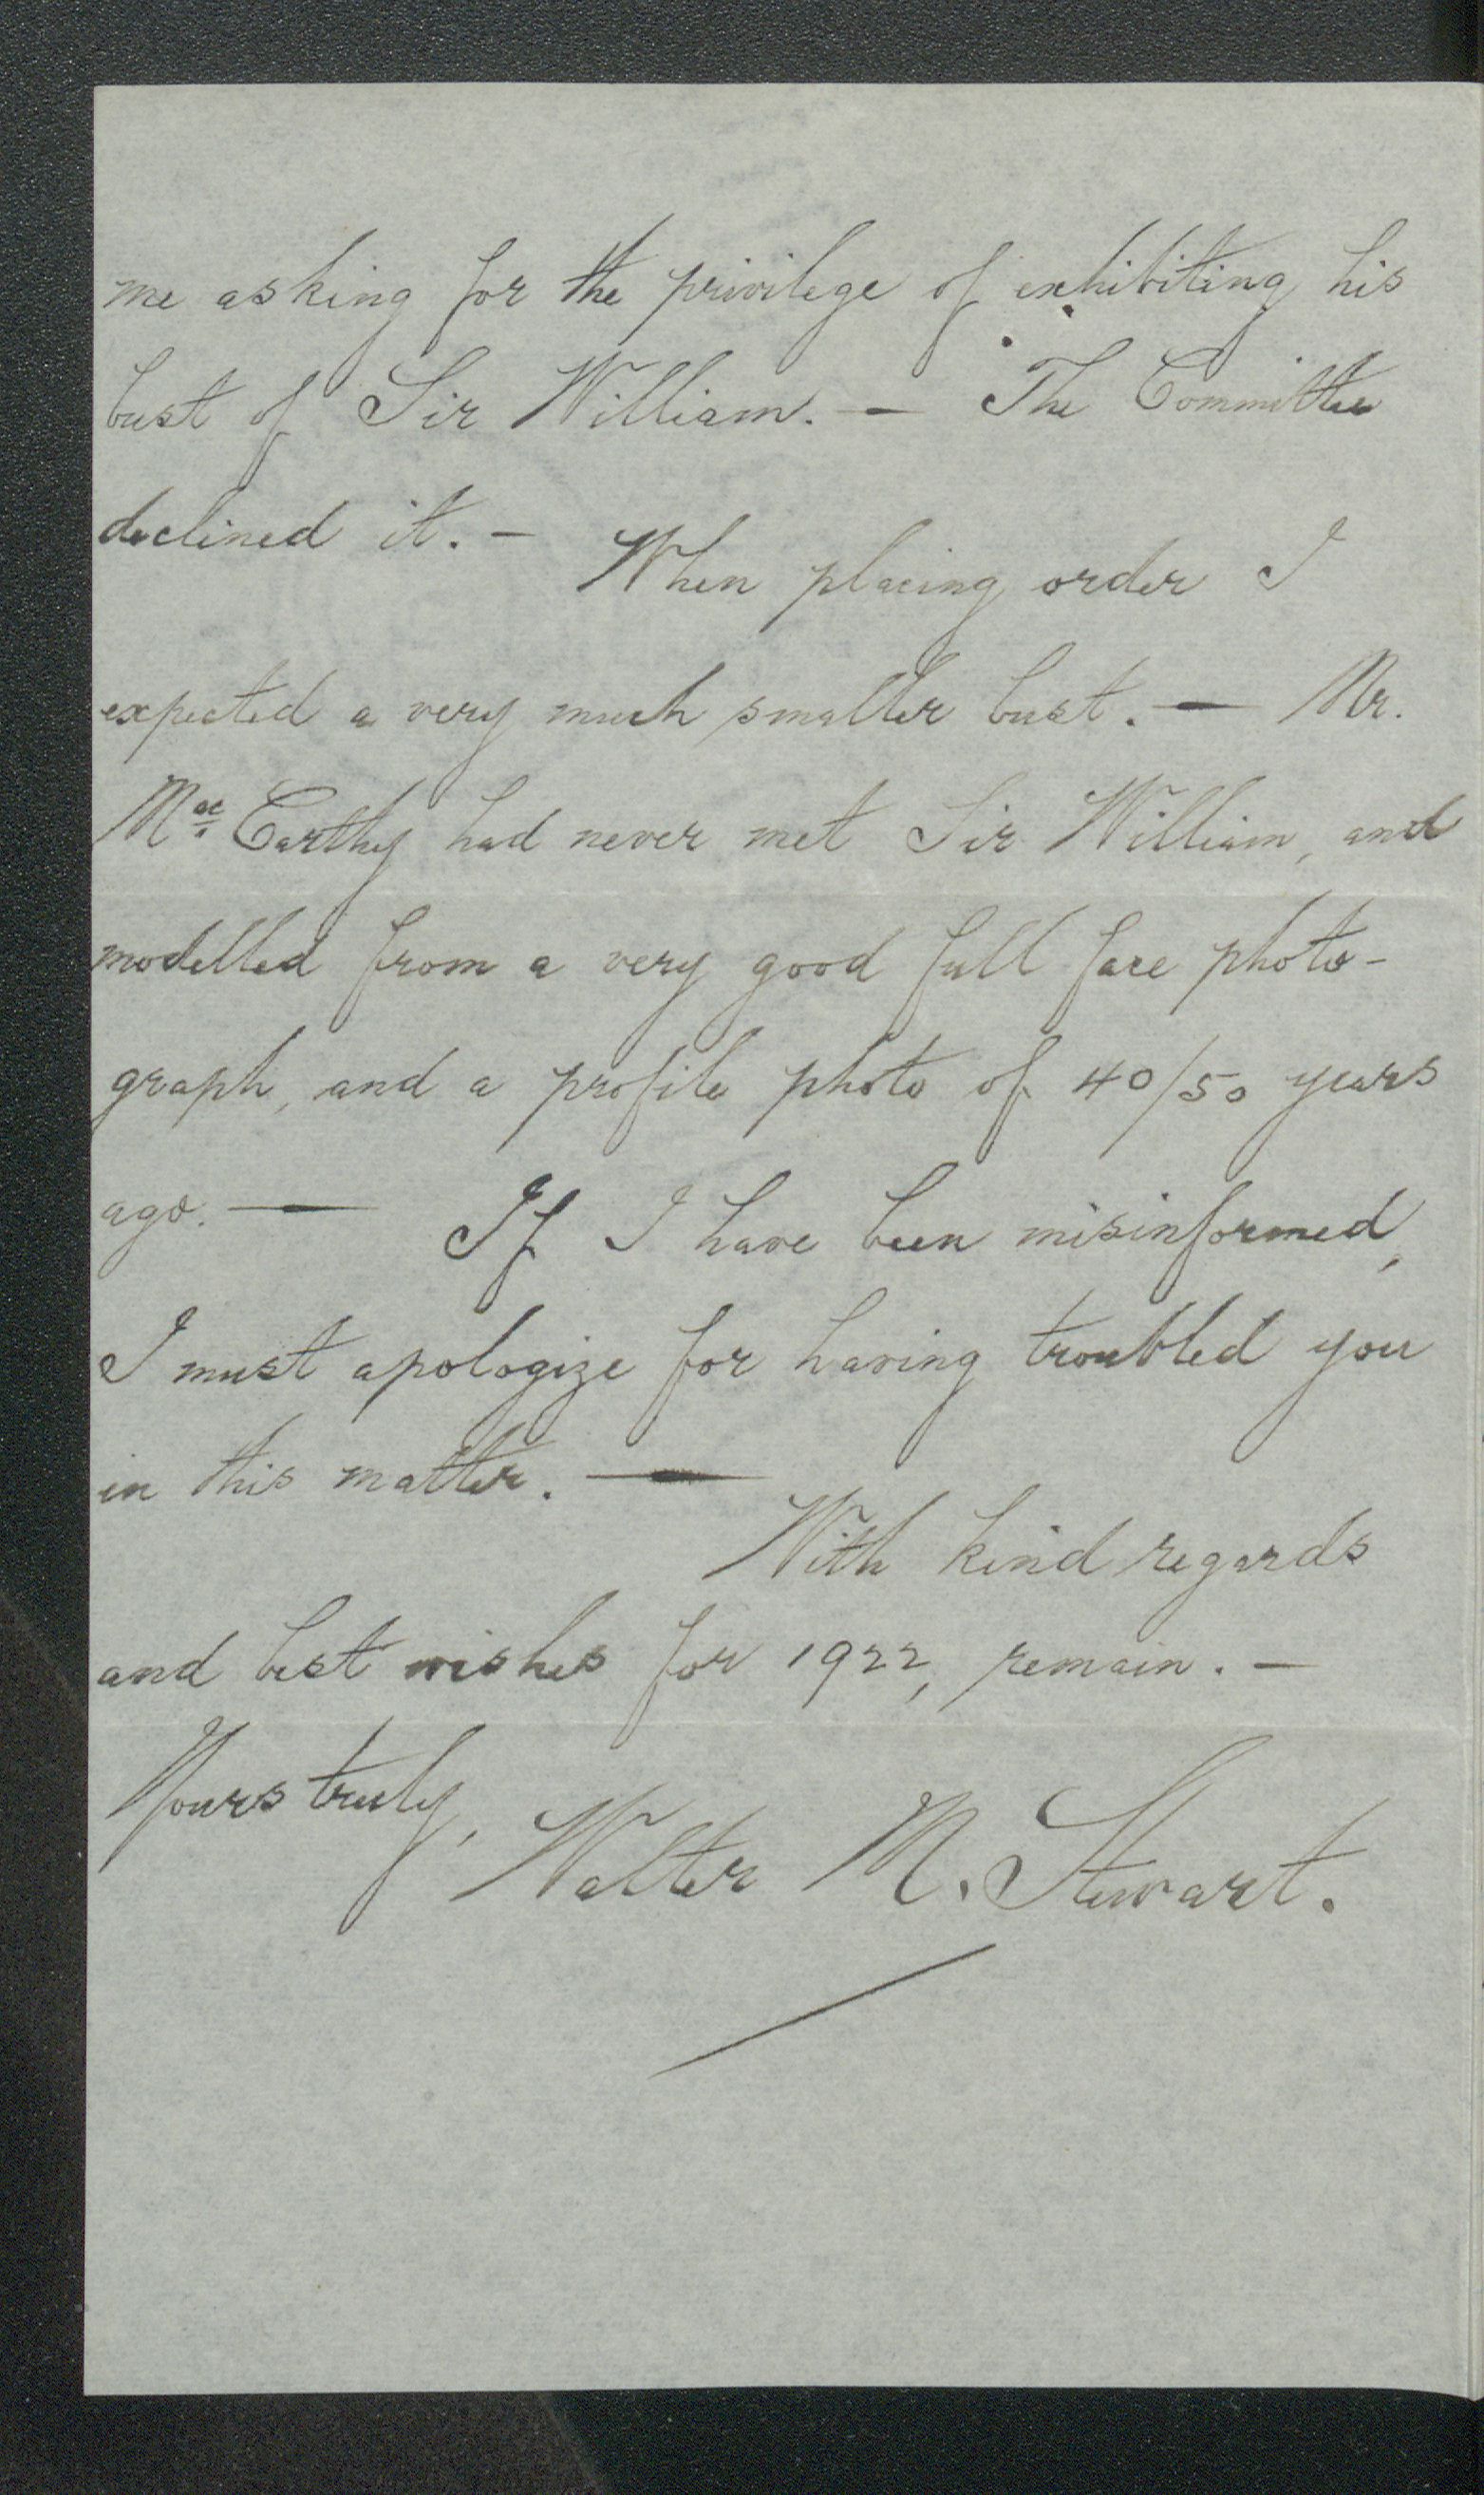 me asking for the privilege of exhibiting his
bust of Sir William. — The Committee
declined it. — When placing order I
expected a very much smaller bust. — Mr.
Mac Carthy had never met Sir William, and
modelled from a very good full face photo-
graph, and a profile photo of 40/50 years
ago. — If I have been misinformed,
I must apologize for having troubled you
in this matter. —
With kind regards
and best wishes for 1922, remain. —
Yours truly,
Walter M. Stewart.